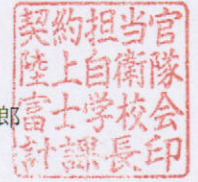 郎
契約担当官
陸上自衛隊
富士学校会
計課長印